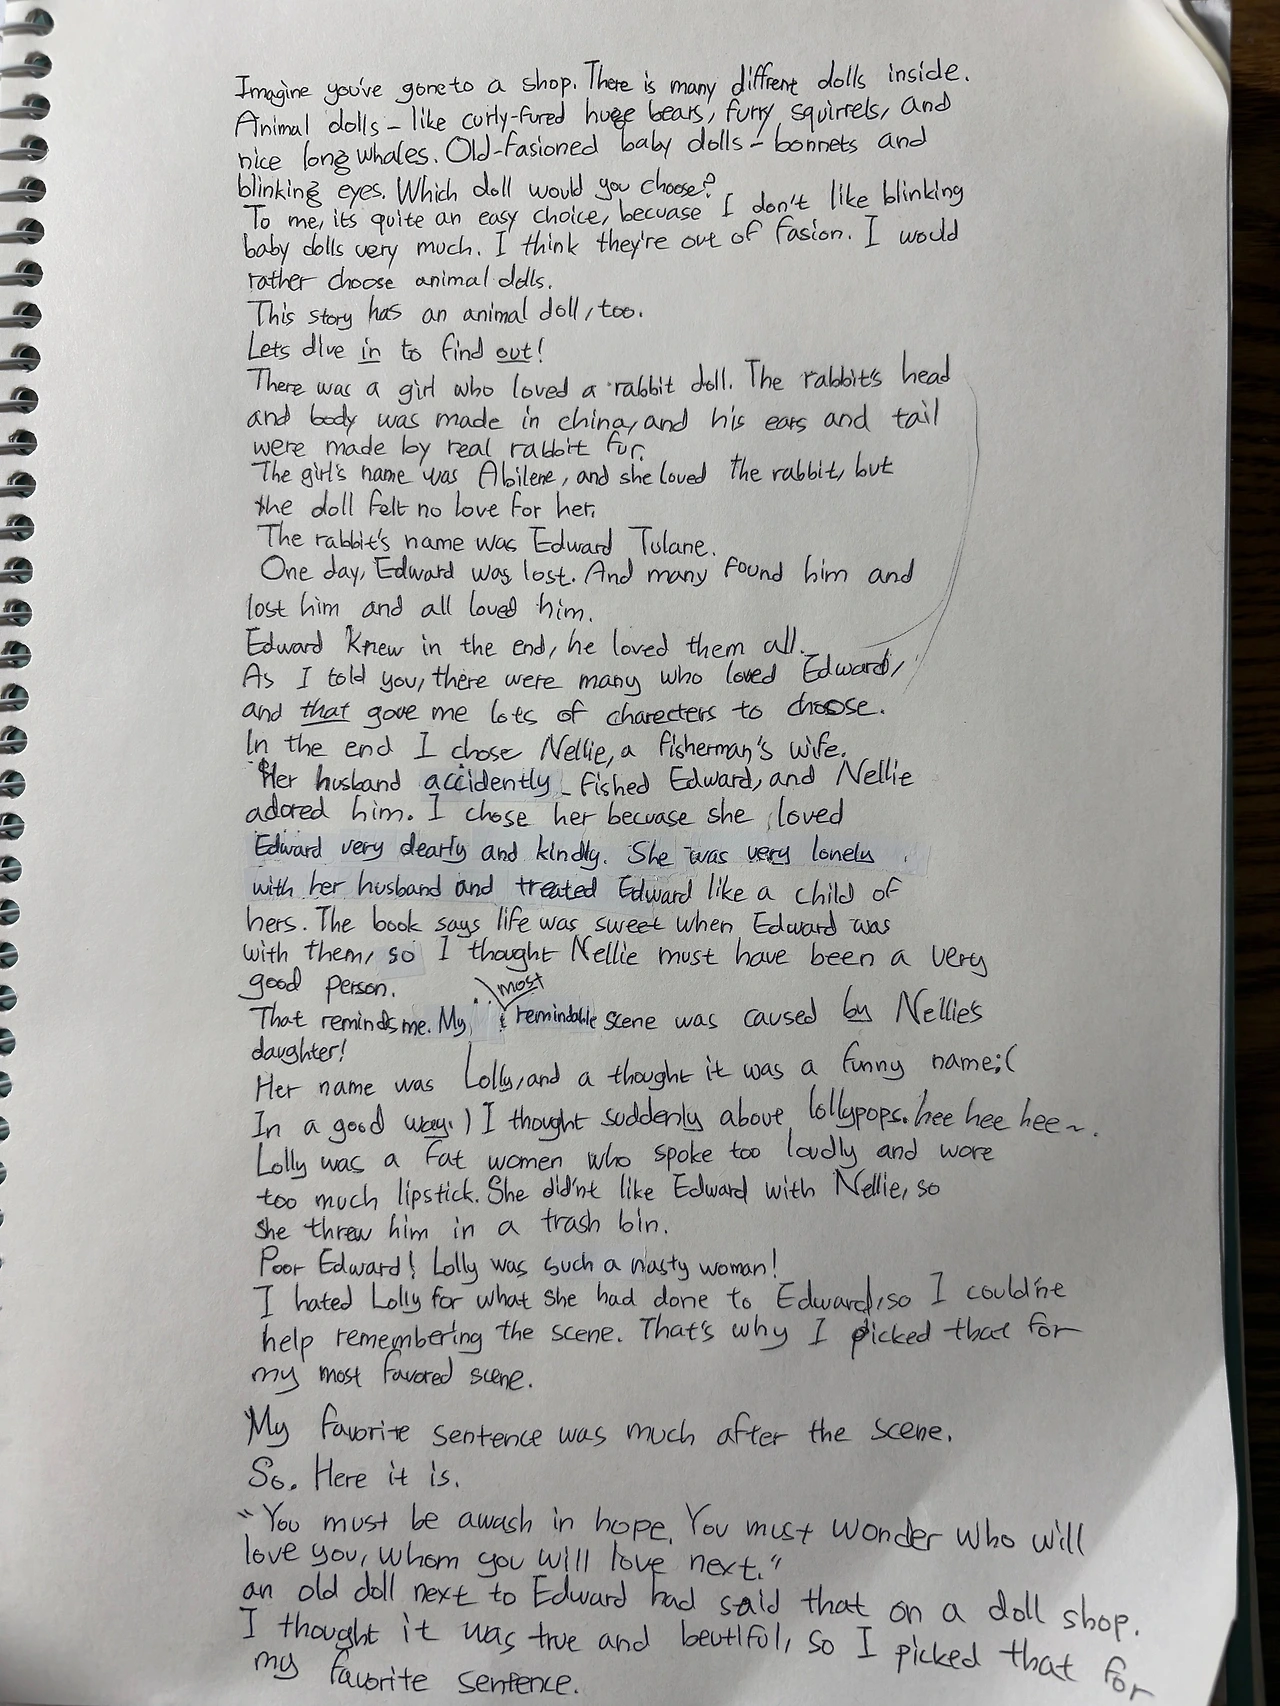 Imagine you've gone to a shop. There is many diffrent dolls inside.
Animal dolls - like curly-fured huge bears, furry squirrels, and
nice long whales. Old-fasioned baby dolls - bonnets and
blinking eyes. Which doll would you choose?
To me, its quite an easy choice, becuase I don't like blinking
baby dolls very much. I think they're out of fasion. I would
rather choose animal dolls.
This story has an animal doll, too.
Lets dive in to find out!
There was a girl who loved a rabbit doll. The rabbit's head
and body was made in china, and his ears and tail
were made by real rabbit fur.
The girl's name was Abilene, and she loved the rabbit, but
the doll felt no love for her.
The rabbit's name was Edward Tulane.
One day, Edward was lost. And many found him and
lost him and all loved him.
Edward knew in the end, he loved them all.
As I told you, there were many who loved Edward,
and that gave me lots of charecters to choose.
In the end I chose Nellie, a fisherman's wife.
Her husband accidently fished Edward, and Nellie
adored him. I chose her becuase she loved
Edward very dearly and kindly. She was very lonely
with her husband and treated Edward like a child of
hers. The book says life was sweet when Edward was
with them, so I thought Nellie must have been a very
good person.
That reminds me. My most remindable scene was caused by Nellie's
daughter!
Her name was Lolly, and a thought it was a funny name;(
In a good way.) I thought suddenly above lollypops. hee hee hee~.
Lolly was a fat women who spoke too loudly and wore
too much lipstick. She did'nt like Edward with Nellie, so
she threw him in a trash bin.
Poor Edward! Lolly was such a nasty woman!
I hated Lolly for what she had done to Edward, so I could'nt
help remembering the scene. That's why I picked that for
my most favored scene.
My favorite sentence was much after the scene.
So. Here it is.
"You must be awash in hope. You must wonder who will
love you, whom you will love next."
an old doll next to Edward had said that on a doll shop.
I thought it was true and beutiful, so I picked that for
my favorite sentence.